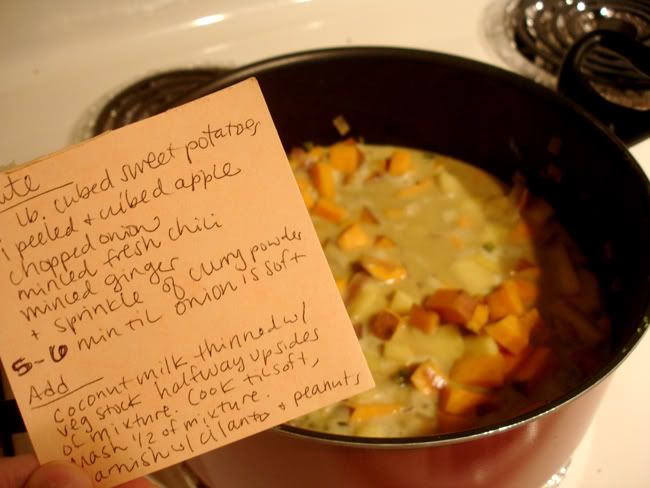 ute
lb. cubed sweet potatoes
1 peeled + cubed apple
chopped onion
minced fresh chili
minced ginger
+ sprinkle of curry powder
5-6 min til onion is soft
Add
coconut milk thinned w/
veg stock halfway up sides
of mixture. Cook til soft,
mash 1/2 of mixture.
arnish w/ cilantro + peanuts